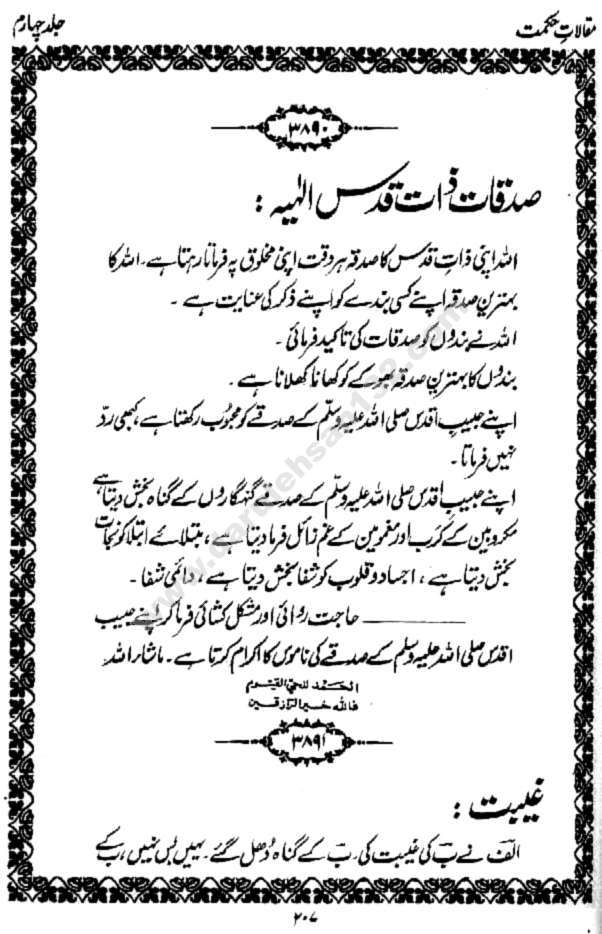 مقالاتِ حکمت
جلد چہارم
۳۸۹۰
صدقات ذات قدس الٰہیہ :
اللہ اپنی ذاتِ قدس کا صدقہ ہر وقت اپنی مخلوق پہ فرماتا رہتا ہے۔ اللہ کا
بہترین صدقہ اپنے کسی بندے کو اپنے ذکر کی عنایت ہے ۔
اللہ نے بندوں کو صدقات کی تاکید فرمائی ۔
بندوں کا بہترین صدقہ بھوکے کو کھانا کھلانا ہے ۔
اپنے حبیبِ اقدس صلی اللہ علیہ وسلم کے صدقے کو محبوب رکھتا ہے ، کبھی ردّ
نہیں فرماتا ۔
اپنے حبیبِ اقدس صلی اللہ علیہ وسلّم کے صدقے گنہگاروں کے گناہ بخش دیتا ہے
مکروبین کے کرب اور مغمومین کے غم زائل فرما دیتا ہے ، مبتلائے ابتلا کو نجات
بخش دیتا ہے ، اجساد و قلوب کو شفا بخش دیتا ہے ، دائمی شفا ۔
حاجت روائی اور مشکل کشائی فرما کر اپنے حبیب
اقدس صلی اللہ علیہ وسلم کے صدقے کی ناموس کا اکرام کرتا ہے ۔ ماشاء اللہ
الحمد للحی القیوم
فاللہ خیر الرازقین
۳۸۹۱
غیبت :
الف نے ب کی غیبت کی. ب کے گناہ دُھل گئے۔ یہیں بس نہیں ، ب کے
۲۰۷
www.darulehsan132.com